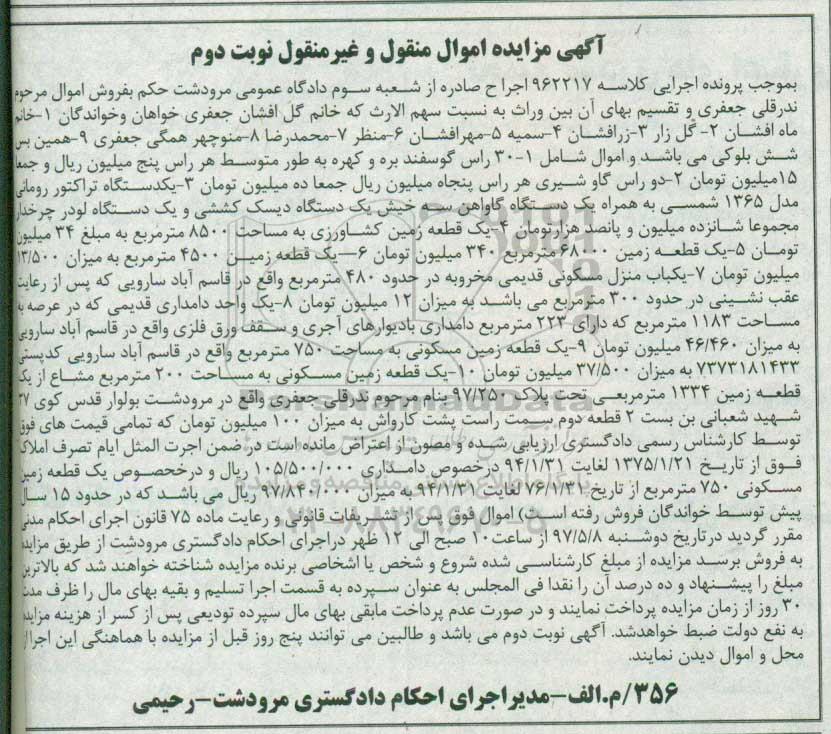 آگهی مزایده اموال منقول و غیرمنقول نوبت دوم
بموجب پرونده اجرایی کلاسه ۹۶۲۲۱۷ اجرا ح صادره از شعبه سوم دادگاه عمومی مرودشت حکم بفروش اموال مرحوم
ندرقلی جعفری و تقسیم بهای آن بین وراث به نسبت سهم الارث که خانم گل افشان جعفری خواهان وخواندگان ۱-خانم
ماه افشان ۲- گل زار ۳-زرافشان ۴-سمیه ۵-مهرافشان ۶-منظر ۷-محمدرضا ۸-منوچهر همگی جعفری ۹-همین بس
شش بلوکی می باشد و اموال شامل ۱-۳۰ راس گوسفند بره و کهره به طور متوسط هر راس پنج میلیون ریال و جمعا
۱۵میلیون تومان ۲-دو راس گاو شیری هر راس پنجاه میلیون ریال جمعا ده میلیون تومان ۳-یکدستگاه تراکتور رومانی
مدل ۱۳۶۵ شمسی به همراه یک دستگاه گاوآهن سه خیش یک دستگاه دیسک کششی و یک دستگاه لودر چرخدار
مجموعا شانزده میلیون و پانصد هزارتومان ۴-یک قطعه زمین کشاورزی به مساحت ۸۵۰۰ مترمربع به مبلغ ۳۴ میلیون
تومان ۵-یک قطعه زمین ۶۸۰۰۰ مترمربع ۳۴۰ میلیون تومان ۶-یک قطعه زمین ۴۵۰۰ مترمربع به میزان ۱۳/۵۰۰
میلیون تومان ۷-یکباب منزل مسکونی قدیمی مخروبه در حدود ۴۸۰ مترمربع واقع در قاسم آباد سارویی که پس از رعایت
عقب نشینی در حدود ۳۰۰ مترمربع می باشد به میزان ۱۲ میلیون تومان ۸-یک واحد دامداری قدیمی که در عرصه به
مساحت ۱۱۸۳ مترمربع که دارای ۲۲۳ مترمربع دامداری بادیوارهای آجری و سقف ورق فلزی واقع در قاسم آباد سارویی
به میزان ۴۶/۴۶۰ میلیون تومان ۹-یک قطعه زمین مسکونی به مساحت ۷۵۰ مترمربع واقع در قاسم آباد سارویی کدپستی
۷۳۷۳۱۸۱۴۳۳ به میزان ۳۷/۵۰۰ میلیون تومان ۱۰-یک قطعه زمین مسکونی به مساحت ۲۰۰ مترمربع مشاع از یک
قطعه زمین ۱۳۳۴ مترمربعی تحت پلاک ۹۷/۲۵۰ بنام مرحوم ندرقلی جعفری واقع در مرودشت بولوار قدس کوی ۲۷
شهید شعبانی بن بست ۲ قطعه دوم سمت راست پشت کارواش به میزان ۱۰۰ میلیون تومان که تمامی قیمت های فوق
توسط کارشناس رسمی دادگستری ارزیابی شده و مصون از اعتراض مانده است در ضمن اجرت المثل ایام تصرف املاک
فوق از تاریخ ۱۳۷۵/۱/۲۱ لغایت ۹۴/۱/۳۱ درخصوص دامداری ۱۰۵/۵۰۰/۰۰۰ ریال و درخحصوص یک قطعه زمین
مسکونی ۷۵۰ مترمربع از تاریخ ۷۶/۱/۳۱ لغایت ۹۴/۱/۳۱ به میزان ۹۷/۸۴۰/۰۰۰ ریال می باشد که در حدود ۱۵ سال
پیش توسط خواندگان فروش رفته است) اموال فوق پس از تشریفات قانونی و رعایت ماده ۷۵ قانون اجرای احکام مدنی
مقرر گردید درتاریخ دوشنبه ۹۷/۵/۸ از ساعت۱۰ صبح الی ۱۲ ظهر دراجرای احکام دادگستری مرودشت از طریق مزایده
به فروش برسد مزایده از مبلغ کارشناسی شده شروع و شخص یا اشخاصی برنده مزایده شناخته خواهند شد که بالاترین
مبلغ را پیشنهاد و ده درصد آن را نقدا فی المجلس به عنوان سپرده به قسمت اجرا تسلیم و بقیه بهای مال را ظرف مدت
۳۰ روز از زمان مزایده پرداخت نمایند و در صورت عدم پرداخت مابقی بهای مال سپرده تودیعی پس از کسر از هزینه مزایده
به نفع دولت ضبط خواهدشد. آگهی نوبت دوم می باشد و طالبین می توانند پنج روز قبل از مزایده با هماهنگی این اجرا از
محل و اموال دیدن نمایند.
۳۵۶/م.الف-مدیراجرای احکام دادگستری مرودشت-رحیمی